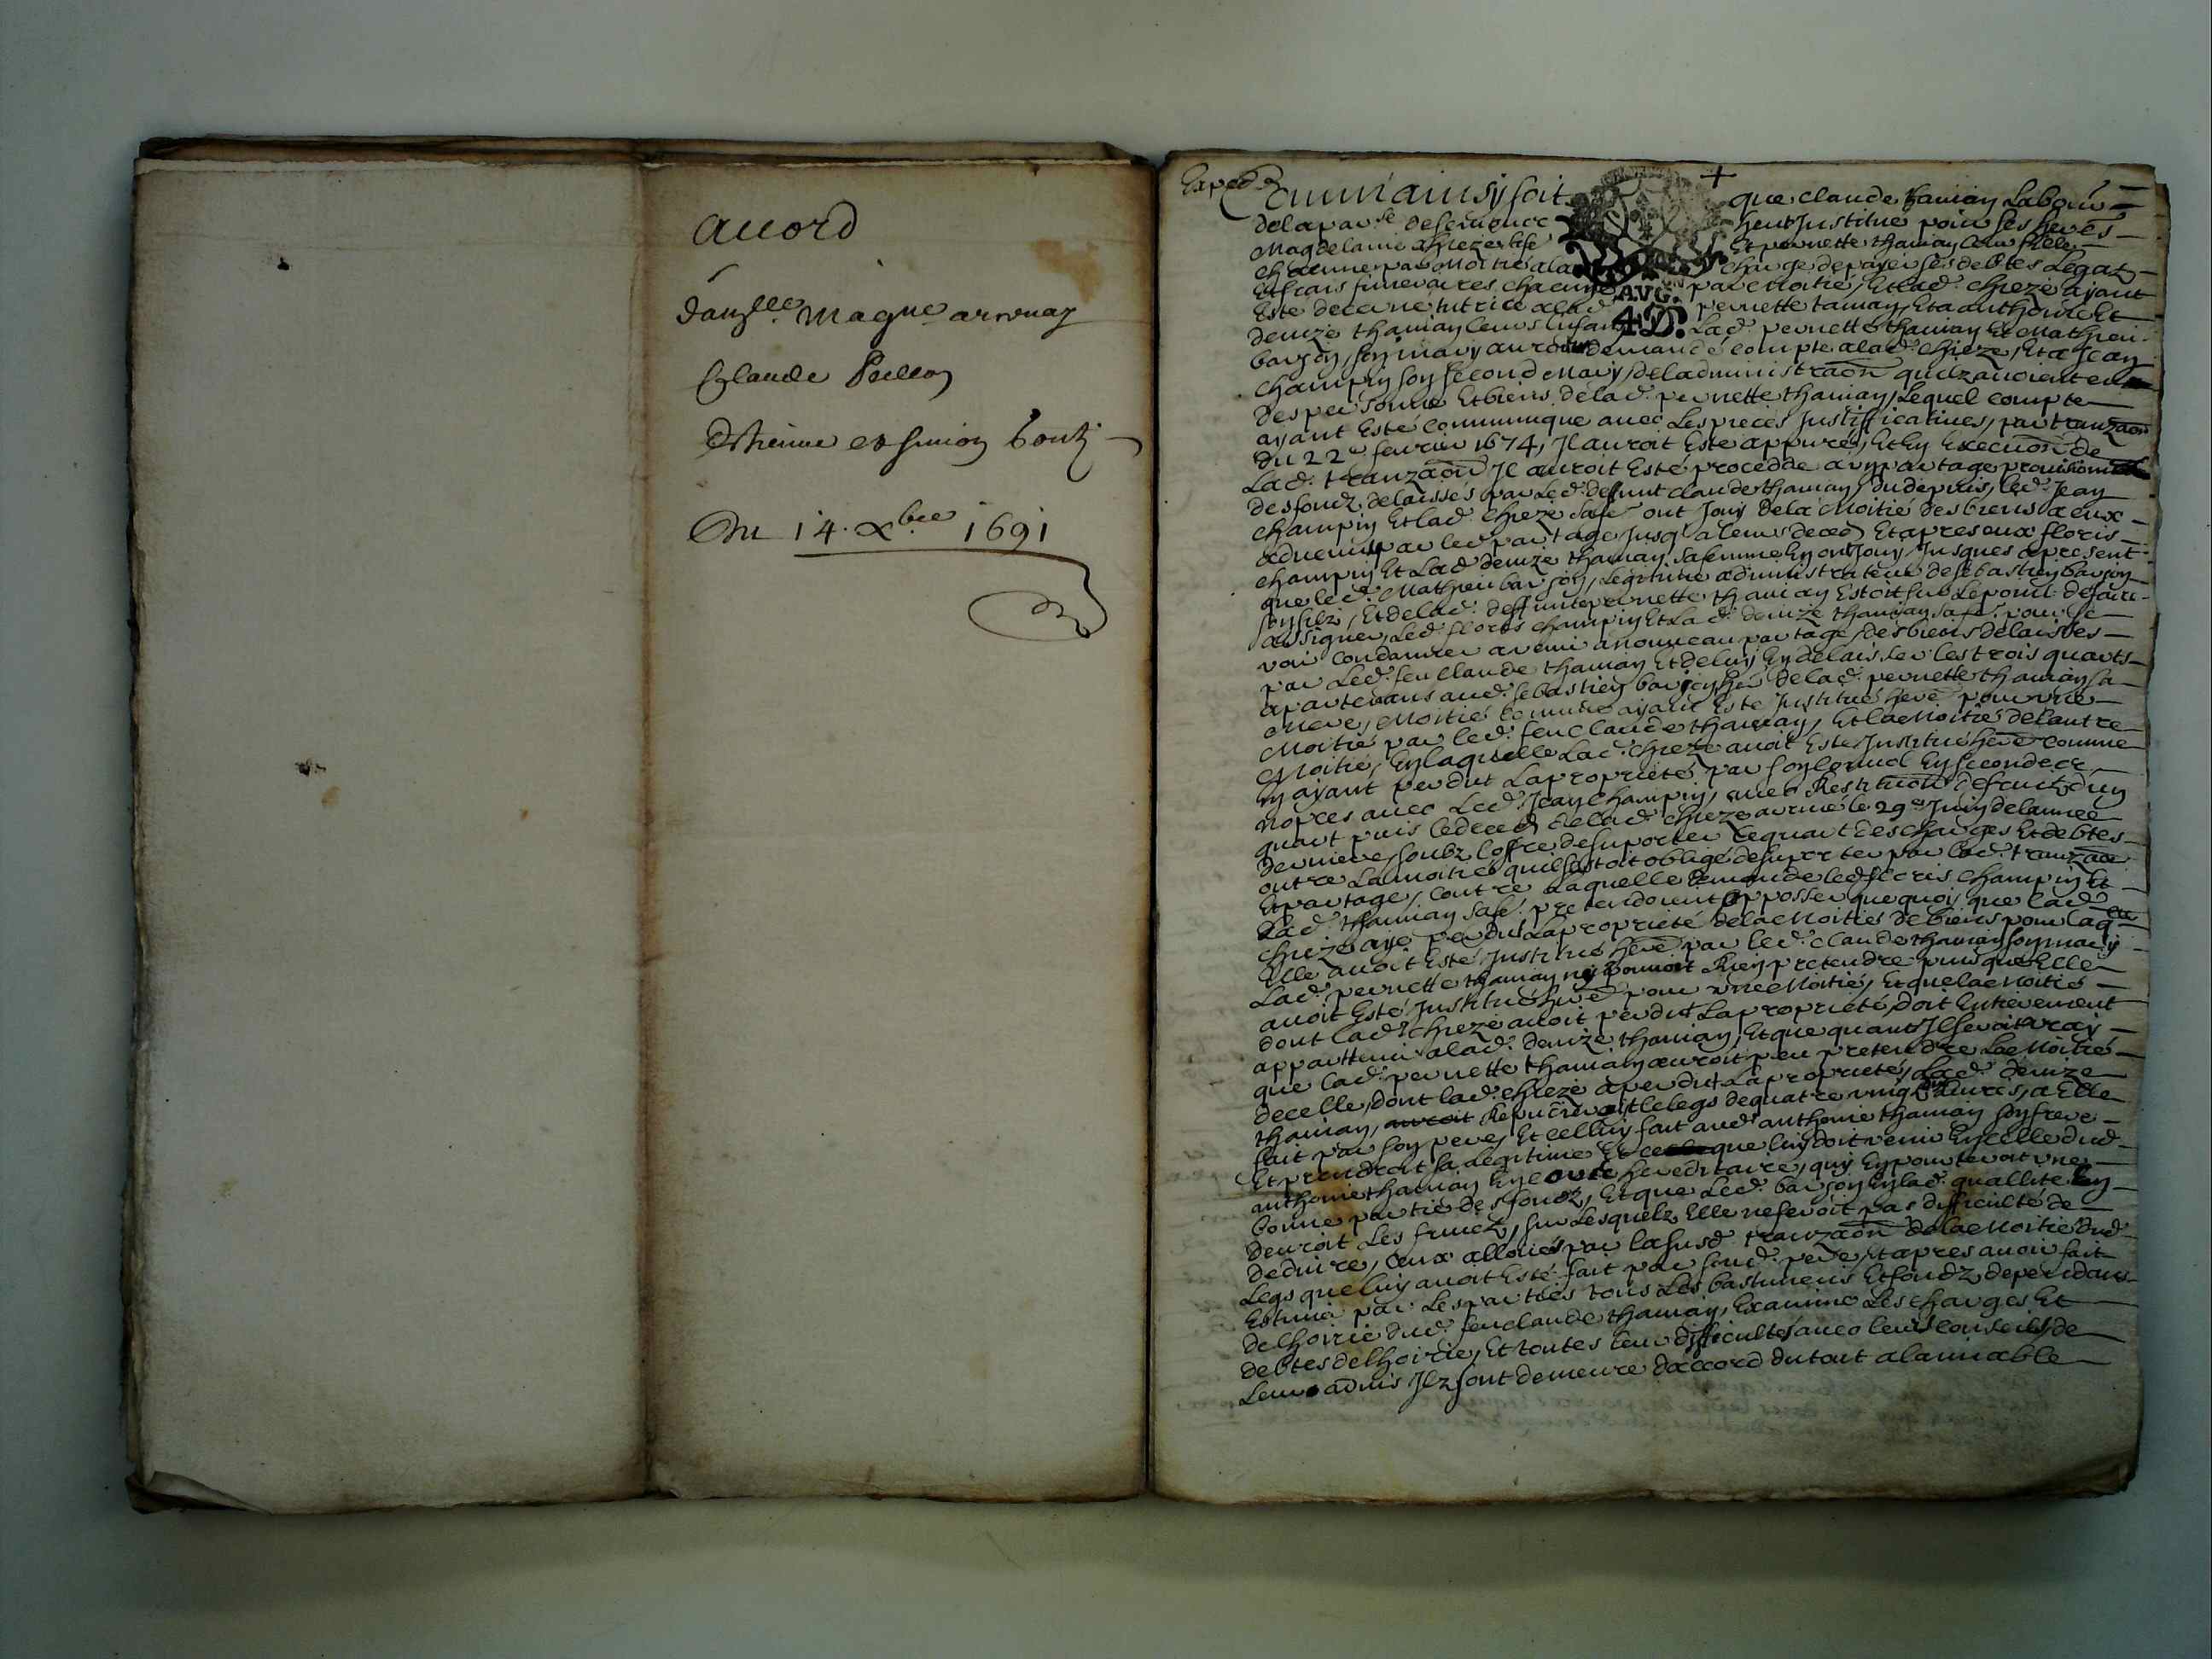 accord
damlle Magne arnouay
Claude
Estienne et simon
Du 14. Xbre 1691
Exped
Comm ainsy soit que claude thamian Labour
de la par.se de heut Institué pour ses heres
Magdelaine chieze sa fe Et pernette thamian leur fille
chacune par Moitié a la charge de payer ses debtes Legatz
Et frais funeraires chacune par Moitié, Et lad. chieze ayant
AVG.
4D.
Esté decerné tutrice a lad. pernette tamian, Et a anthoine Et
denize thamian leurs Enfans Lad. pernette thamian Et Mathieu
barjon, son mary auroient demandé compte a lad. chieze, Et a Jean
champin son second Mary, de ladministraon quilz avoient eu
des personne Et biens de lad. pernette thamian, Lequel compte
ayant Esté communiqué avec Les pieces Justifficatives, par tranzaon
du 22e fevrier 1674, Il auroit Esté appuré, Et En Execuon de
Lad. tranzaon Il auroit Esté proceddé a un partage provisionnel
des fondz delaissés par Led. deffunt claude thamian, du depuis, led. Jean
champin Et lad. chieze sa fe ont Jouy de la Moitié des biens a eux
advenus par led. partage Jusqu'a leurs deced Et apres eux floris
champin Et Lad. denize thamian sa femme En ont Jouy Jusques a present
que led. Mathieu barjon, Legitime administrateur de sebastien barjon
son filz, Et de lad. deffunte pernette thamian Estoit sur le point de faire
assigner, Led. floris champin Et Lad. denize thamian sa fe pour se
voir condamner a venir a nouveau partage, des biens delaissés
par Led. feu claude thamian Et de luy En delaisser les trois quarts
apartenans aud. sebastien barjon here de lad. pernette thamian sa
Mere, Moitié comme ayant Esté Institué here pour une
Moitié par led. feu claude thamian, Et la Moitié de lautre
Moitié, En laquelle Lad. chieze avoit Esté Institué here comme
En ayant perdut La proprieté par son convol En secondes
nopces avec Led. Jean champin, avec Restituon de fruitz d'un
quart puis le deced de lad. chieze arrivé le 29e Juin de lannee
derniere, soubz loffre de suporter le quart des charges Et debtes
outre La moitié quil sestoit obligé de suporter par lad. tranzaon
Et partage, contre Laquelle demande led. floris champin Et
Lad. thamian sa fe pretendoient opposser que quoy que lad.
chieze aye perdu La proprieté de la Moitié de biens pour laqlle
Elle avoit Esté Institué here par led. claude thamian son mary
Lad. pernette thamian ny pouvoit Rien pretendre puis que Elle
avoit Esté Institué here pour une Moitié, Et que la Moitié
dont lad. chieze avoit perdut La proprieté, doit Entierement
appartenir a lad. denize thamian, Et que quant Il seroit vray
que lad. pernette thamian auroit peu pretendre La Moitié
decelle, dont lad. chieze a perdut La proprieté, Lad. denize
thamian, auroit le legs de quatre vingt livres, a Elle
fait par son pere, Et celluy fait aud. anthoine thamian son frere
Et prendroit sa Legitime Et ce que luy doit venir En celle dud.
anthoine thamian En hereditaire, qui En porteroit une
bonne partie des fondz, Et que Led. barjon En lad. quallité En
devroit Les fruictz, sur Lesquelz Elle ne feroit pas difficulté de
deduire, ceux alloués par la susd. tranzaon de la Moitié dud.
Legs que luy avoit Esté fait par sond. pere, Et apres avoir fait
Estimé par Les parties tous Les bastimens Et fondz dependans
de lhoirie dud. feu claude thamian, Examiné Les charges Et
debtes de lhoirie, Et toutes leur difficultés avec leurs conseils de
Leur advis Ilz sont demeuré daccord du tout a lamiable